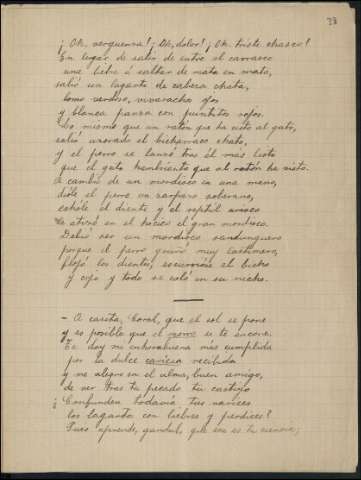 23
¡Oh, verguenza! ¡Oh, dolor! ¡Oh, triste chasco!
En lugar de salir de entre el carrasco
una liebre á saltar de mata en mata,
salió un lagarto de cabeza chata,
lomo verdoso, vivaracho ojos
y blanca panza con puntitos rojos.
Lo mismo que un ratón que ha visto al gato,
salió azorado el bicharraco chato,
y el perro se lanzó tras él más listo
que el gato hambriento que al ratón ha visto.
A cambio de un mordisco en una mano,
dióle el perro un zarpazo soberano,
echóle el diente y el reptil
le atizó en el hocico el gran mordisco.
Debió ser un mordisco sandunguero
porque el perro gruñó muy lastimero,
flojó los dientes, escurrióse el bicho
y cojo y todo se coló en su nicho.
– A casita, Coral, que el sol se pone
y es posible que el morro se te encone.
Te doy mi enhorabuena más cumplida
por la dulce caricia recibida
y me alegro en el alma, buen amigo,
de ver tras tu pecado tu castigo
¿Confunden todavía tus narices
los lagartos con liebres y perdices?
Pues aprende, gandul, que esa es tu ciencia;